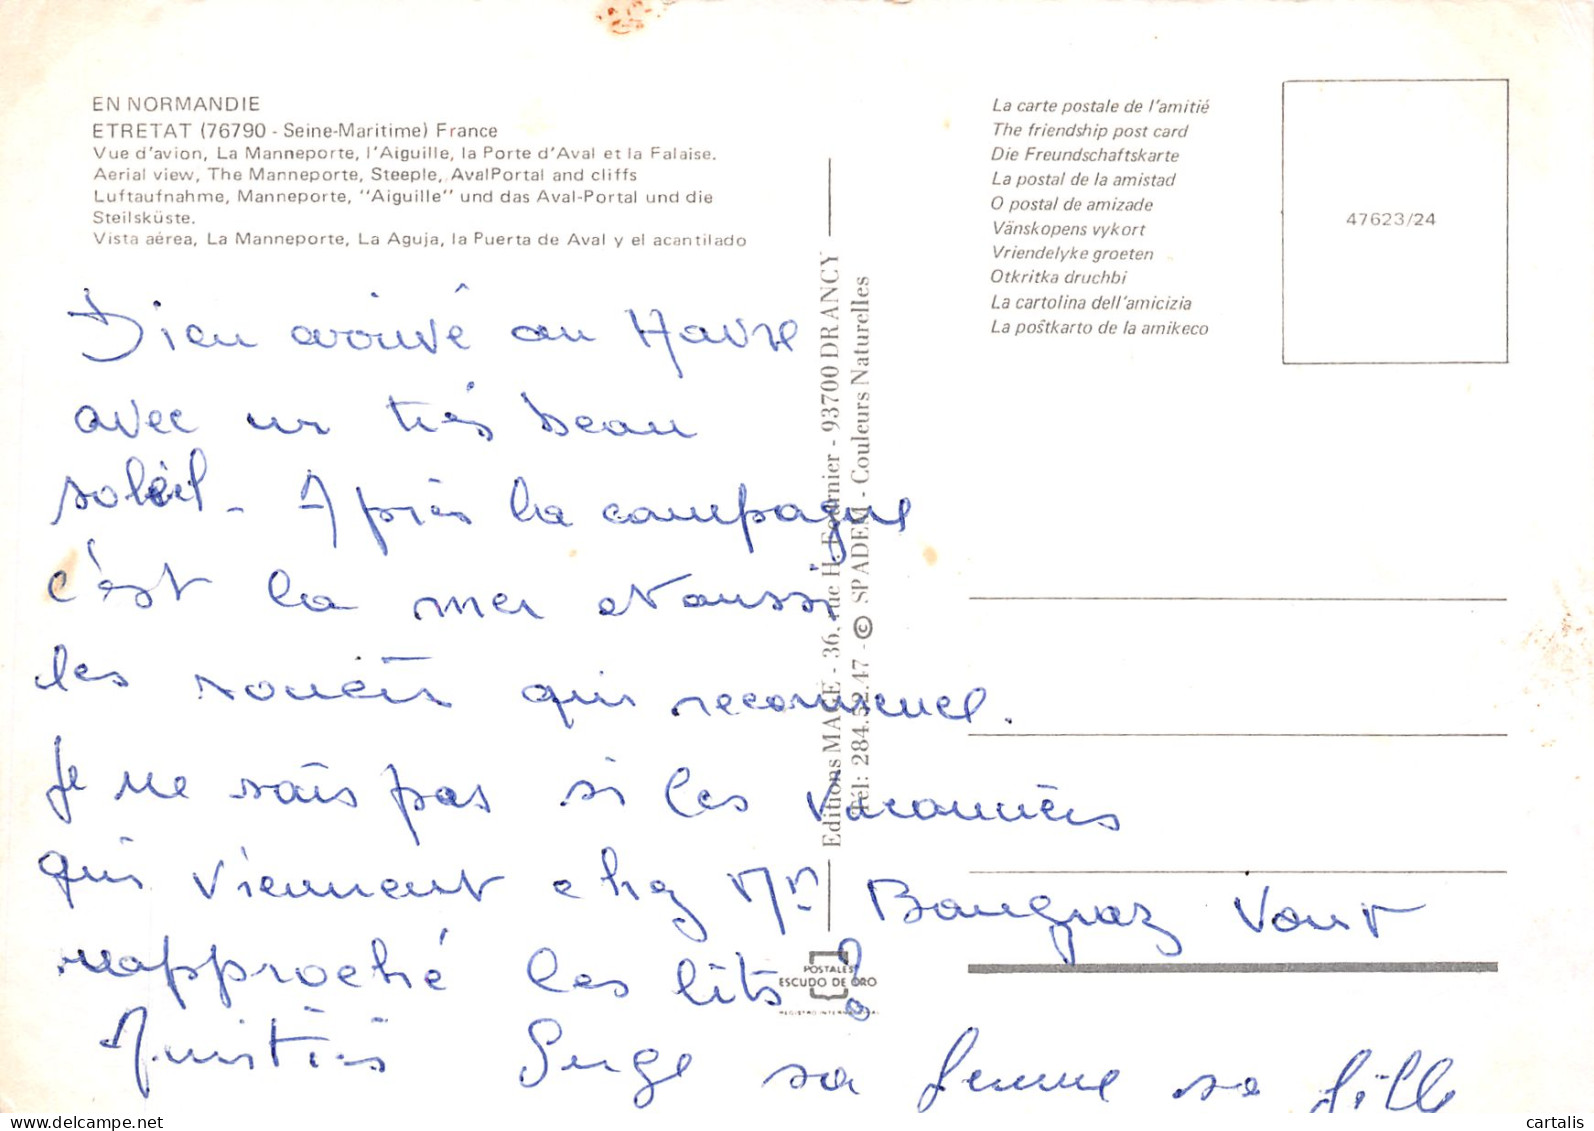 EN NORMANDIE
ETRETAT (76790 - Seine-Maritime) France
Vue d'avion, La Manneporte, l'Aiguille, la Porte d'Aval et la Falaise.
Aerial view, The Manneporte, Steeple, AvalPortal and cliffs
Luftaufnahme, Manneporte, "Aiguille" und das Aval-Portal und die
Steilsküste.
Vista aérea, La Manneporte, La Aguja, la Puerta de Aval y el acantilado
Bien arrivé au Havre
avec un très beau
soleil - Après la campagne
c'est la mer et aussi
les qui recommence.
Je ne sais pas si les vacanciers
qui viennent chez Mr vont
rapproché les lits?
Amitiés Serge sa femme sa fille
Editions MAGE - 36, rue H. Fournier - 93700 DRANCY
Tél: 284.52.47 - © SPADEM - Couleurs Naturelles
POSTALES
ESCUDO DE ORO
REGISTRO INTERNACIONAL
La carte postale de l'amitié
The friendship post card
Die Freundschaftskarte
La postal de la amistad
O postal de amizade
Vänskopens vykort
Vriendelyke groeten
Otkritka druchbi
La cartolina dell'amicizia
La poŝtkarto de la amikeco
47623/24
cartalis
delcampe.net